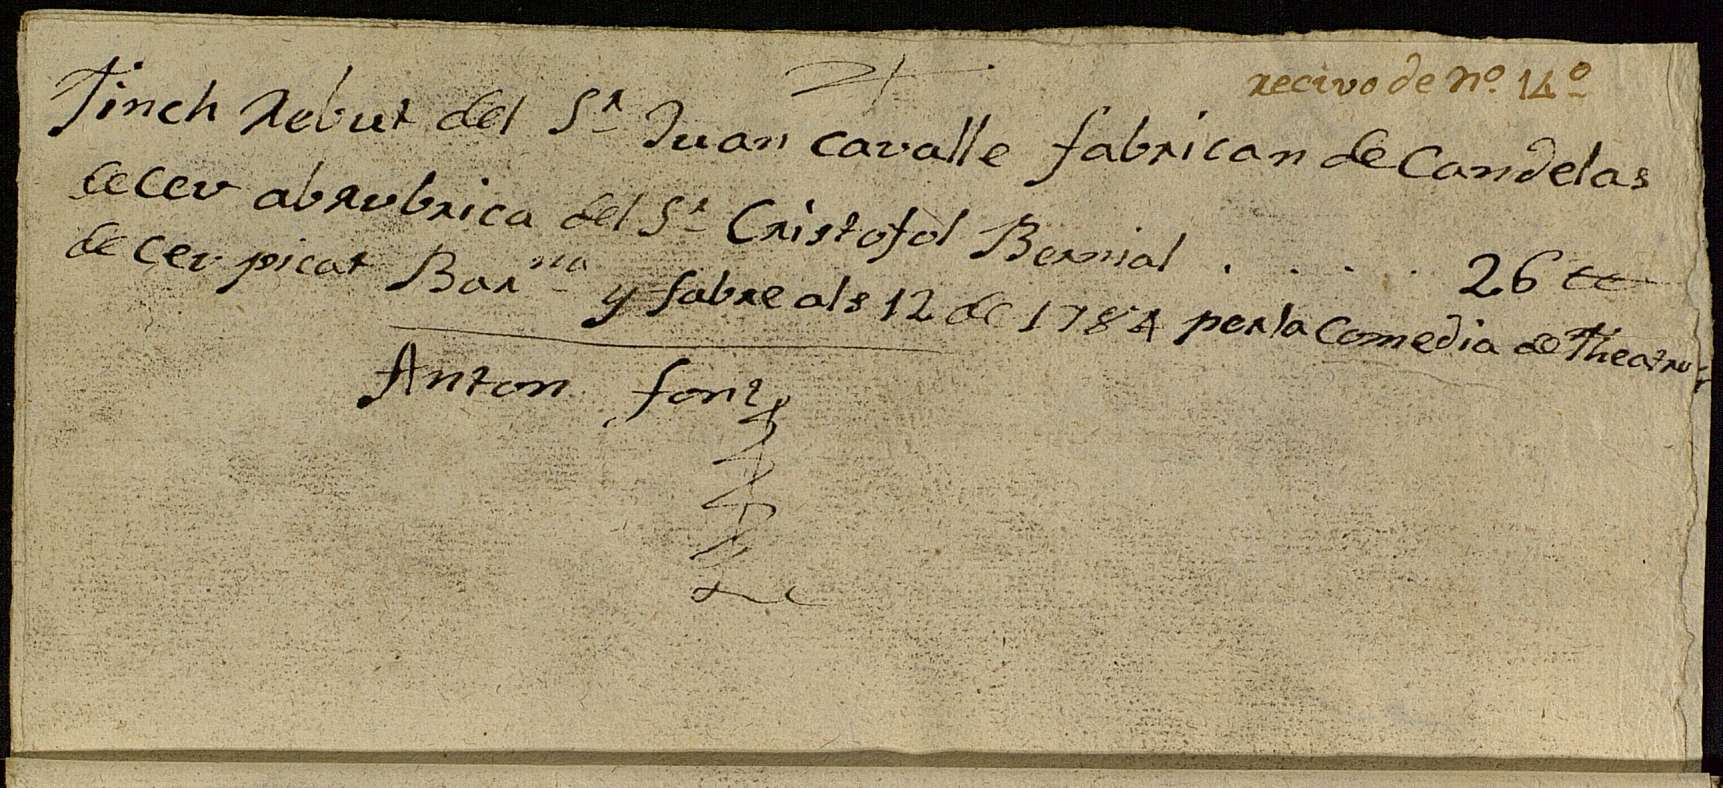 recivo de nº. 14º
Tinch Rebut del Sr Juan Cavalle fabrican de Candelas
de Ceu abrubrica del Sr Cristofol Bernial . . . . 26 tt
de Ceu picat Barna y fabre als 12 de 1784 per la Comedia de Theatro
Anton font